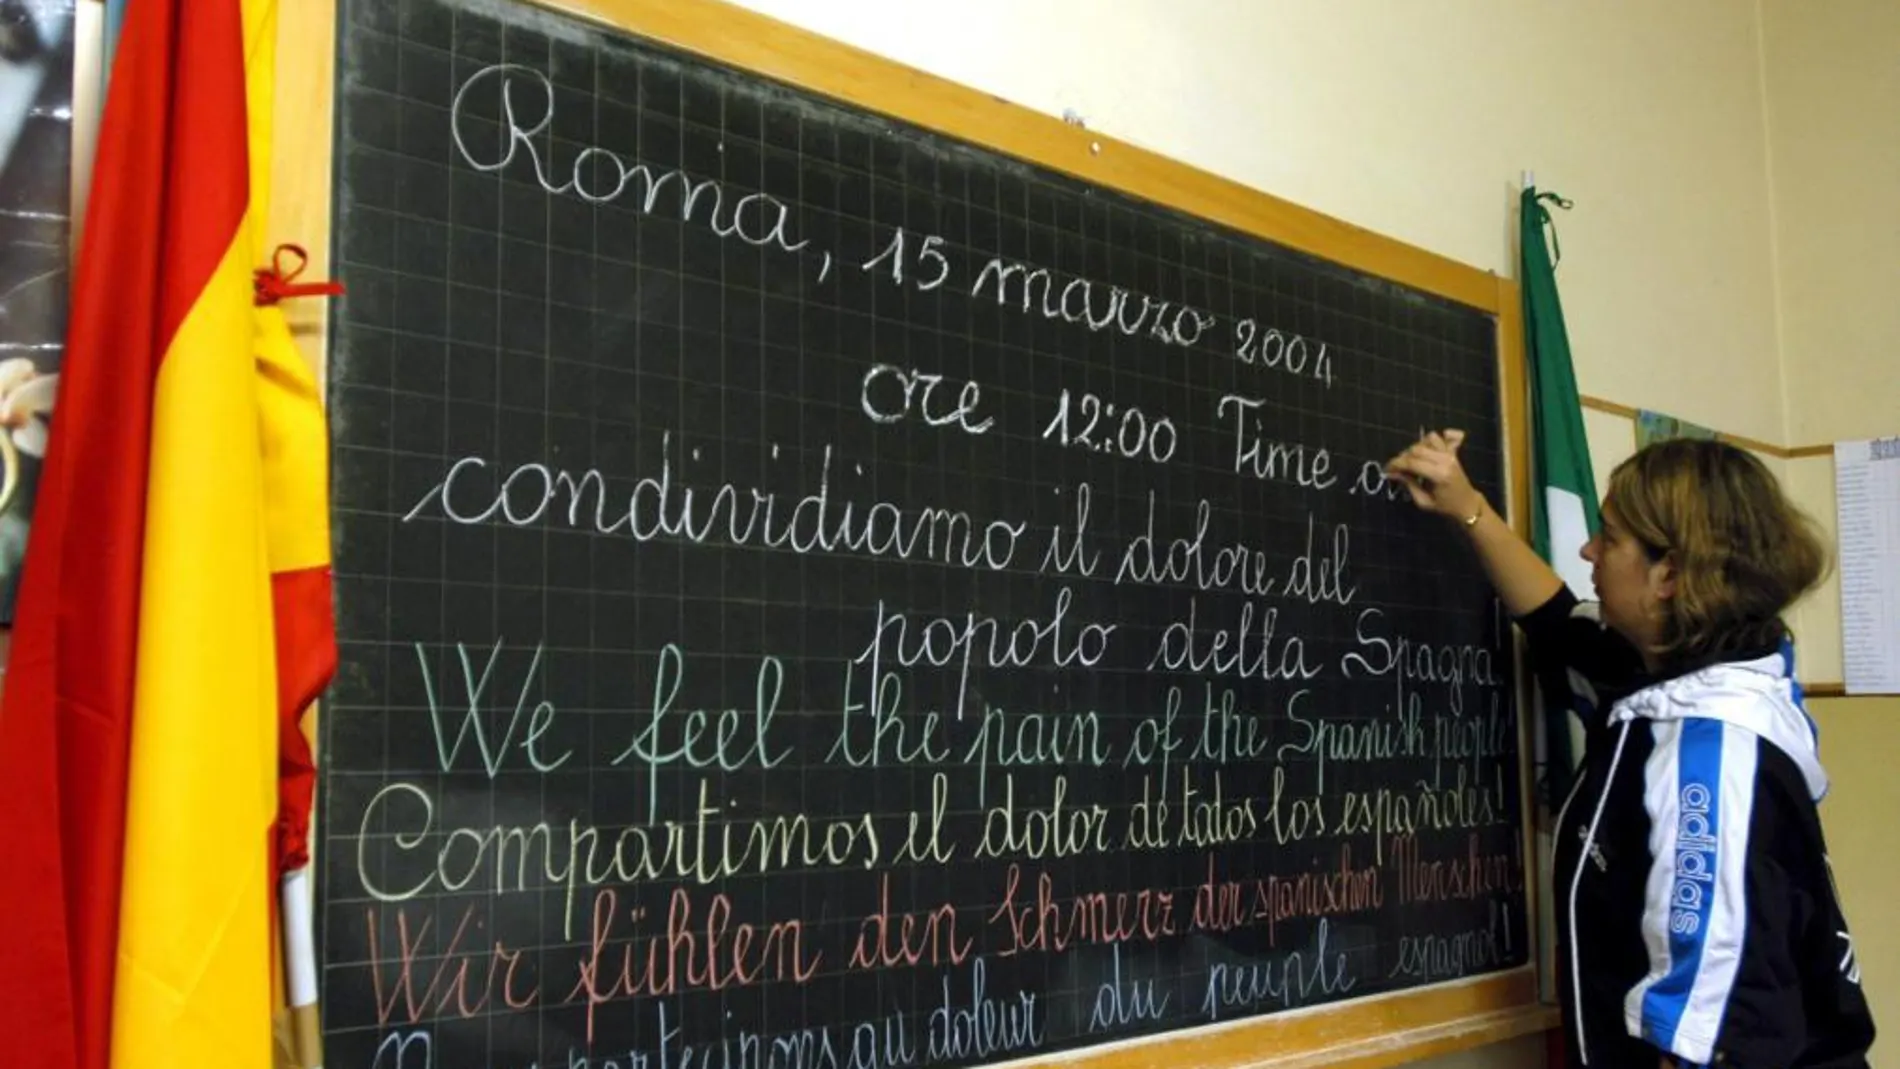 Roma, 15 marzo 2004
ore 12:00 Time
condividiamo il dolore del
popolo della Spagna!
We feel the pain of the Spanish people!
Compartimos el dolor de todos los españoles!
Wir fühlen den Schmerz der spanischen Menschen!
au doleur du peuple espagnol!
adidas